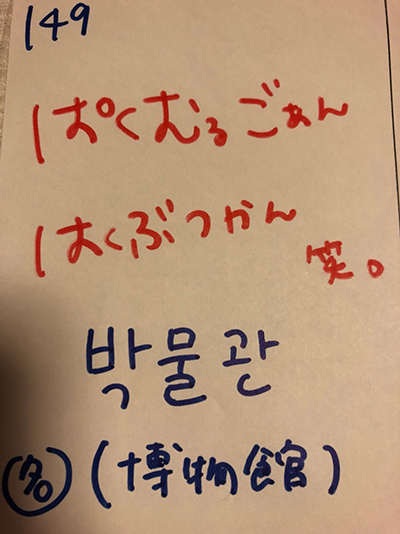 149
ぱくむるごぁん
はくぶつかん
笑。
박물관
名 (博物館)